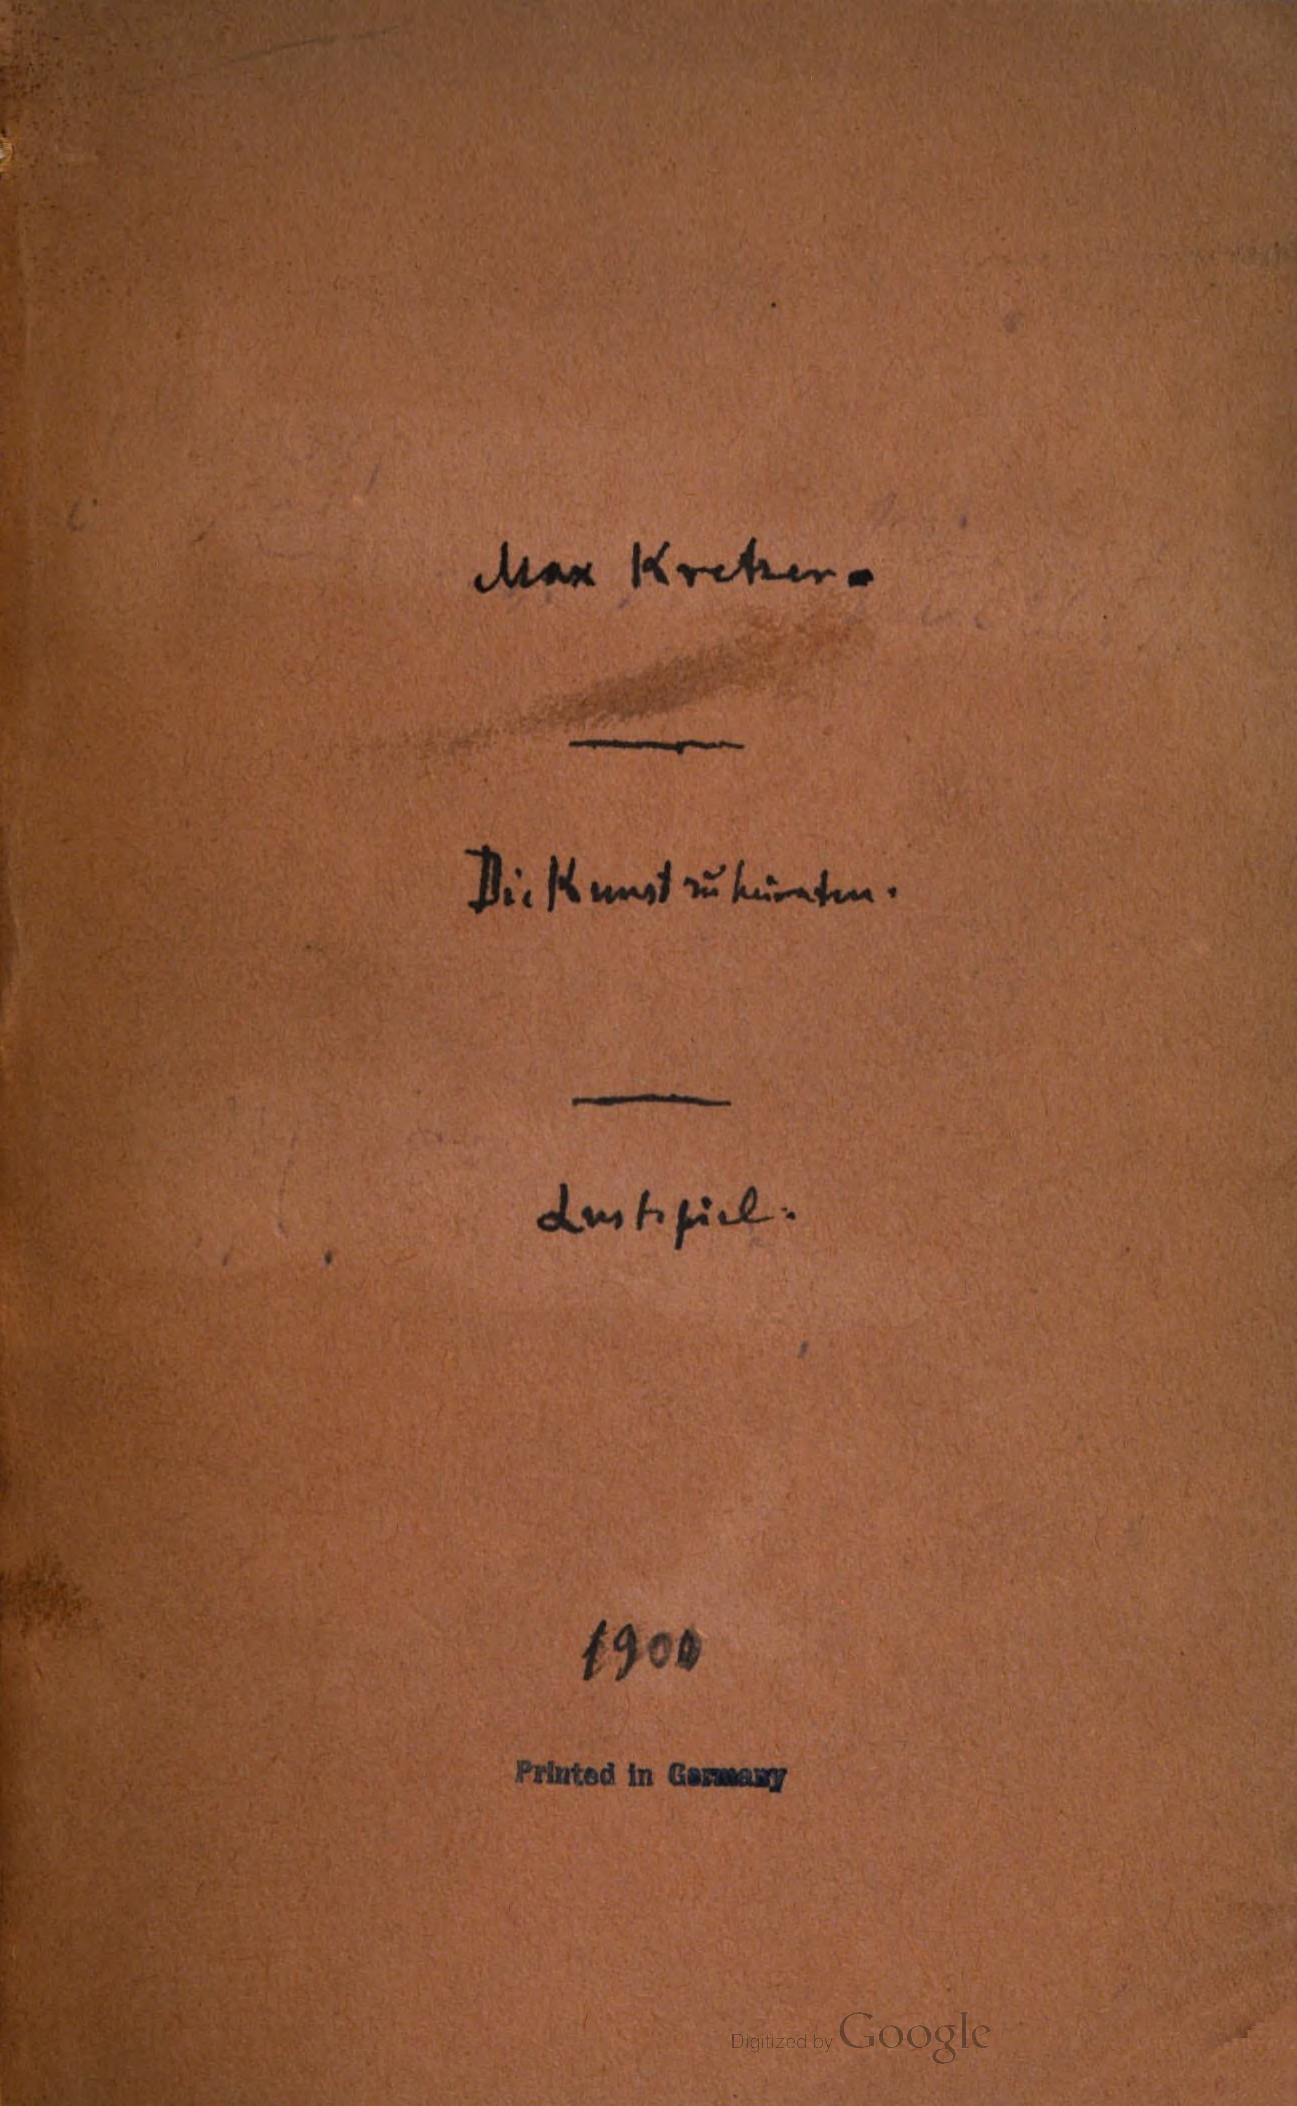 Max Kretzer.
Die Kunst zu heiraten.
Lustspiel.
1900
Printed in Germany
Digitized by Google